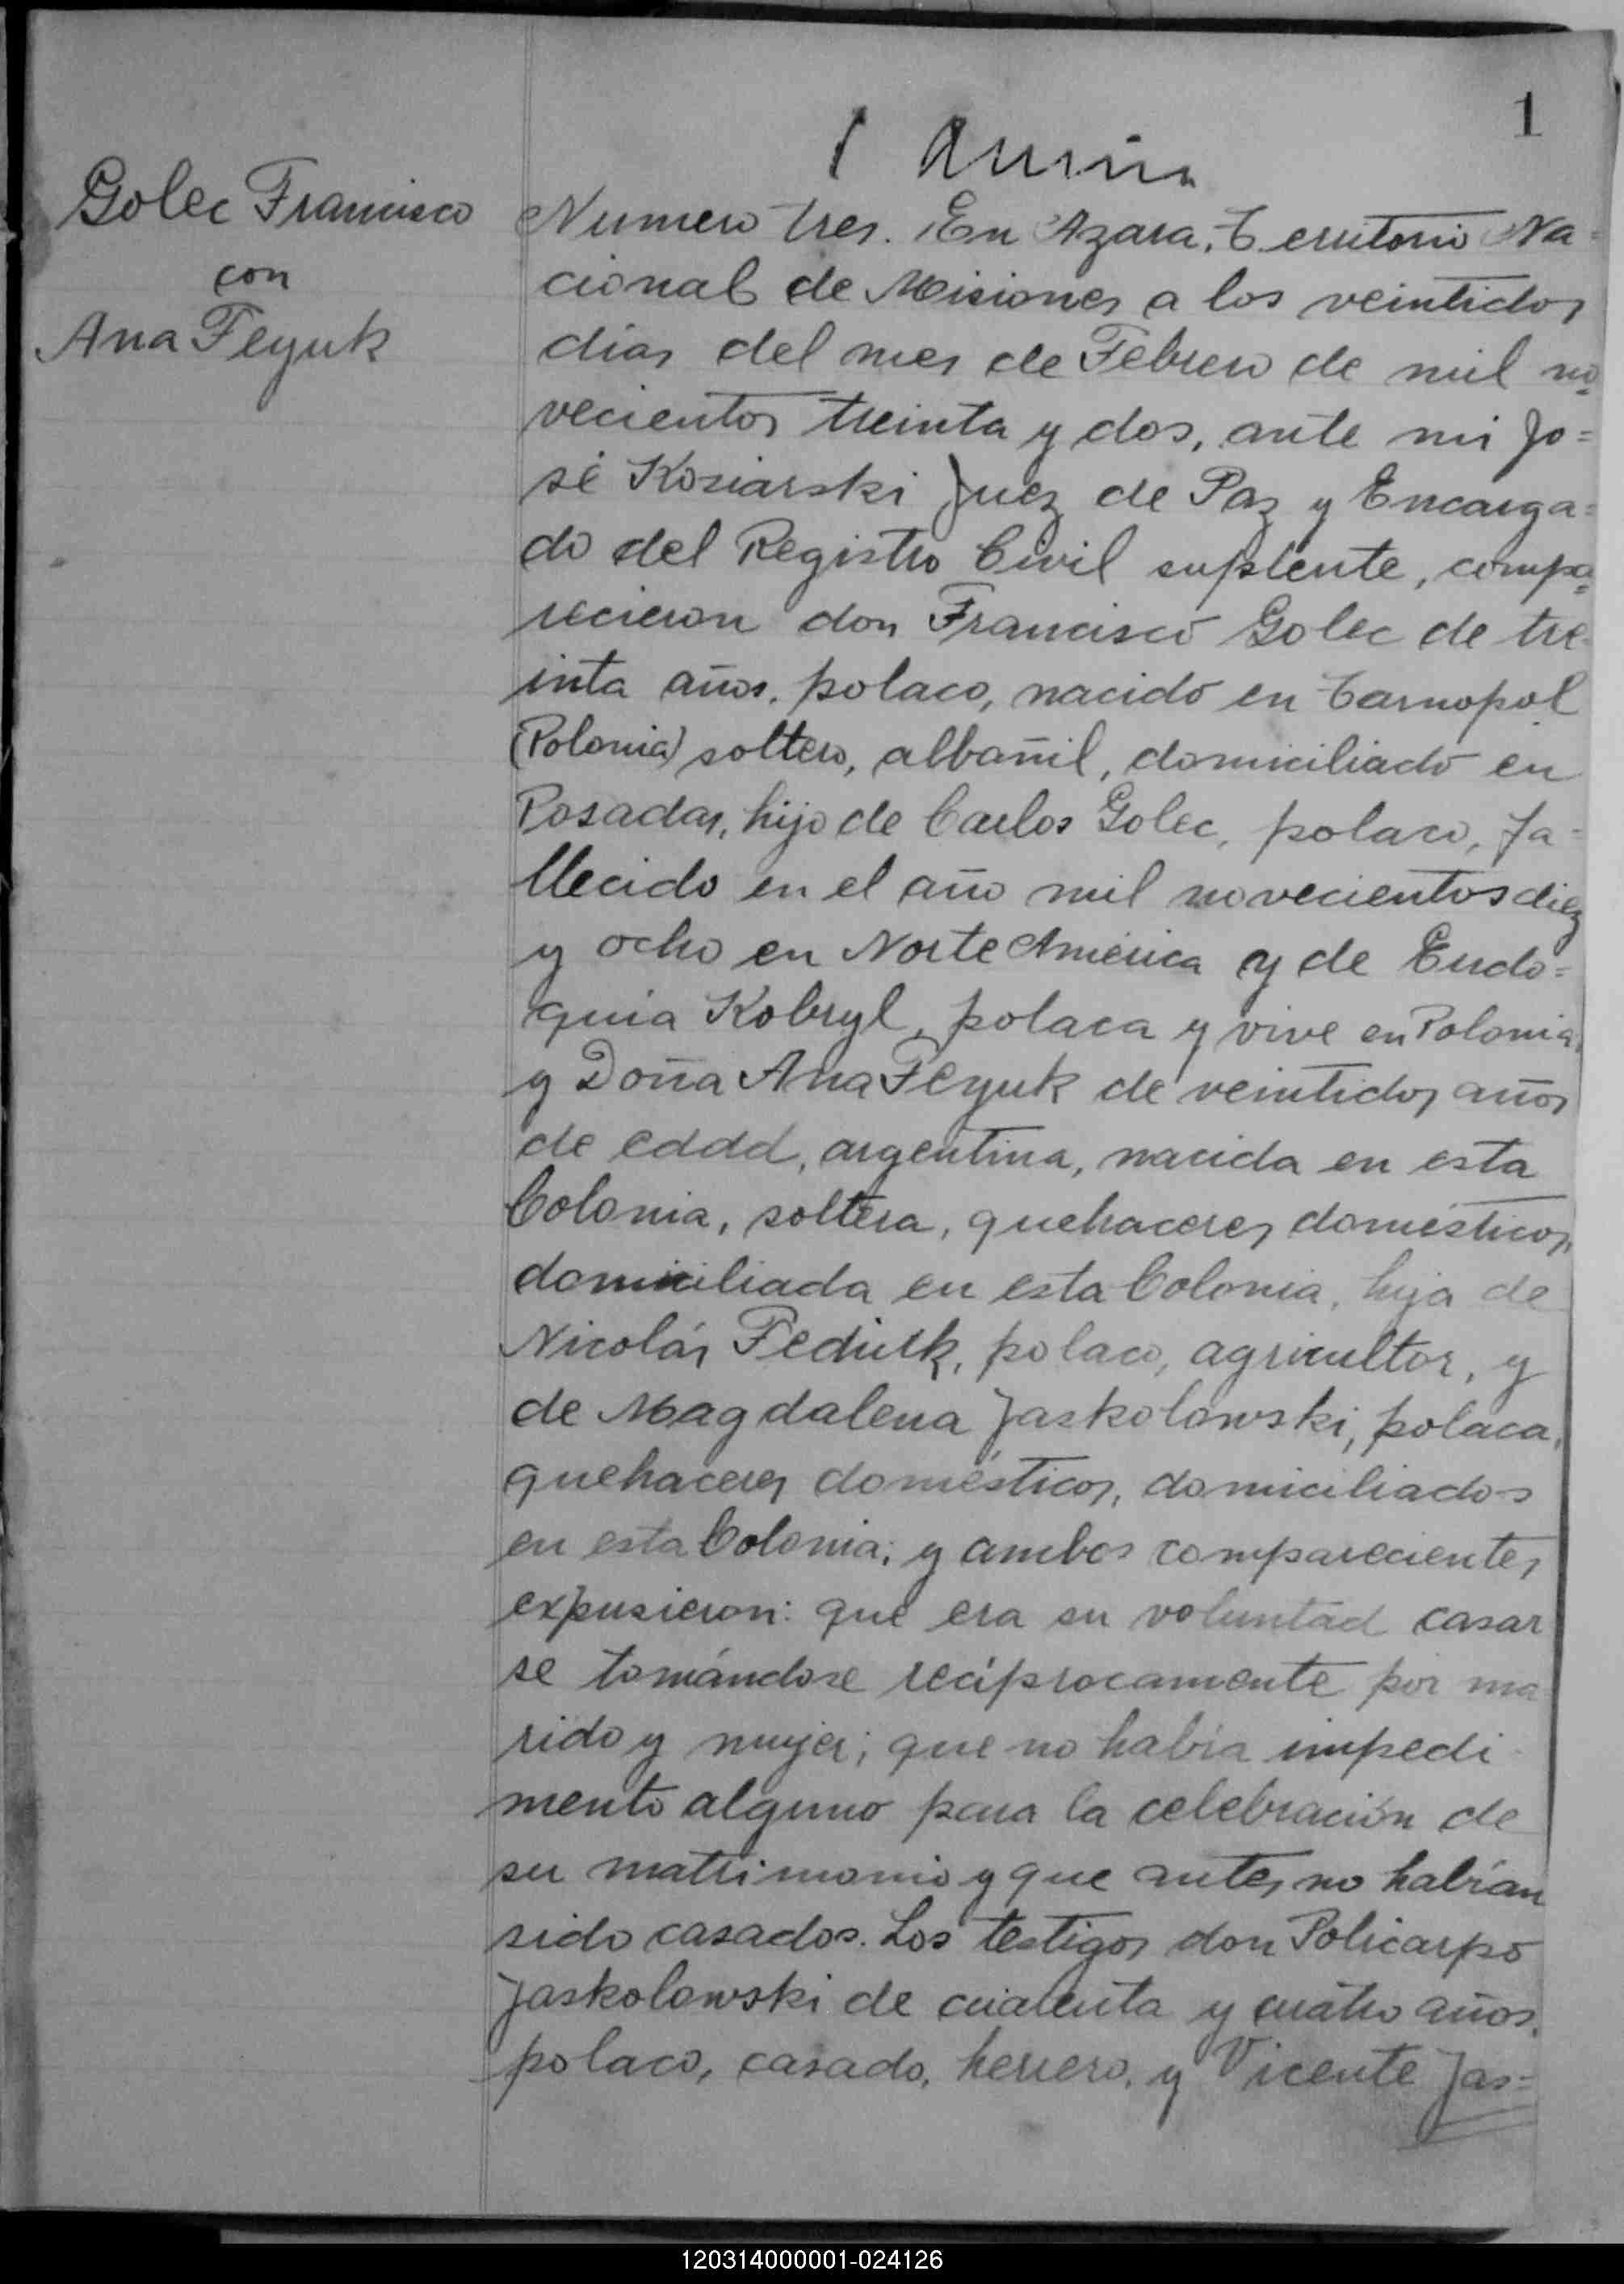 1
Golec Francisco
con
Ana Feyuk
Numero tres. En Azara, Territorio Na=
cional de Misiones a los veintidos
dias del mes de Febrero de mil no=
vecientos treinta y dos, ante mi Jo=
sé Koziarski Juez de Paz y Encarga=
do del Registro Civil suplente, compa=
recieron don Francisco Golec de tre
inta años, polaco, nacido en Tarnopol
(Polonia) soltero, albañil, domiciliado en
Posadas, hijo de Carlos Golec, polaco, fa=
llecido en el año mil novecientos diez
y ocho en Norte América y de Eudo=
quia Kobryl, polaca y vive en Polonia,
y Doña Ana Feyuk de veintidos años
de edad, argentina, nacida en esta
Colonia, soltera, quehaceres domésticos,
domiciliada en esta Colonia, hija de
Nicolás Fediuk, polaco, agricultor, y
de Magdalena Jaskolowski, polaca,
quehaceres domésticos, domiciliados
en esta Colonia; y ambos comparecientes
expusieron: que era su voluntad casar
se tomándose recíprocamente por ma
rido y mujer; que no había impedi-
mento alguno para la celebración de
su matrimonio y que antes no habían
sido casados. Los testigos don Policarpo
Jaskolowski de cuarenta y cuatro años,
polaco, casado, herrero, y Vicente Jas=
120314000001-024126